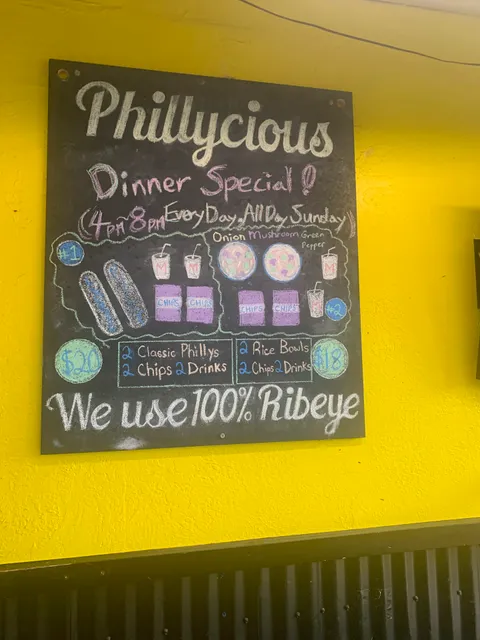 Phillycious
Dinner Special!
(4pm-8pm Every Day, All Day Sunday)
#1
M M
CHIPS CHIPS
Onion Mushroom Green Pepper
M
CHIPS CHIPS
#2
$20
2 Classic Phillys
2 Chips 2 Drinks
2 Rice Bowls
2 Chips 2 Drinks
$18
We use 100% Ribeye